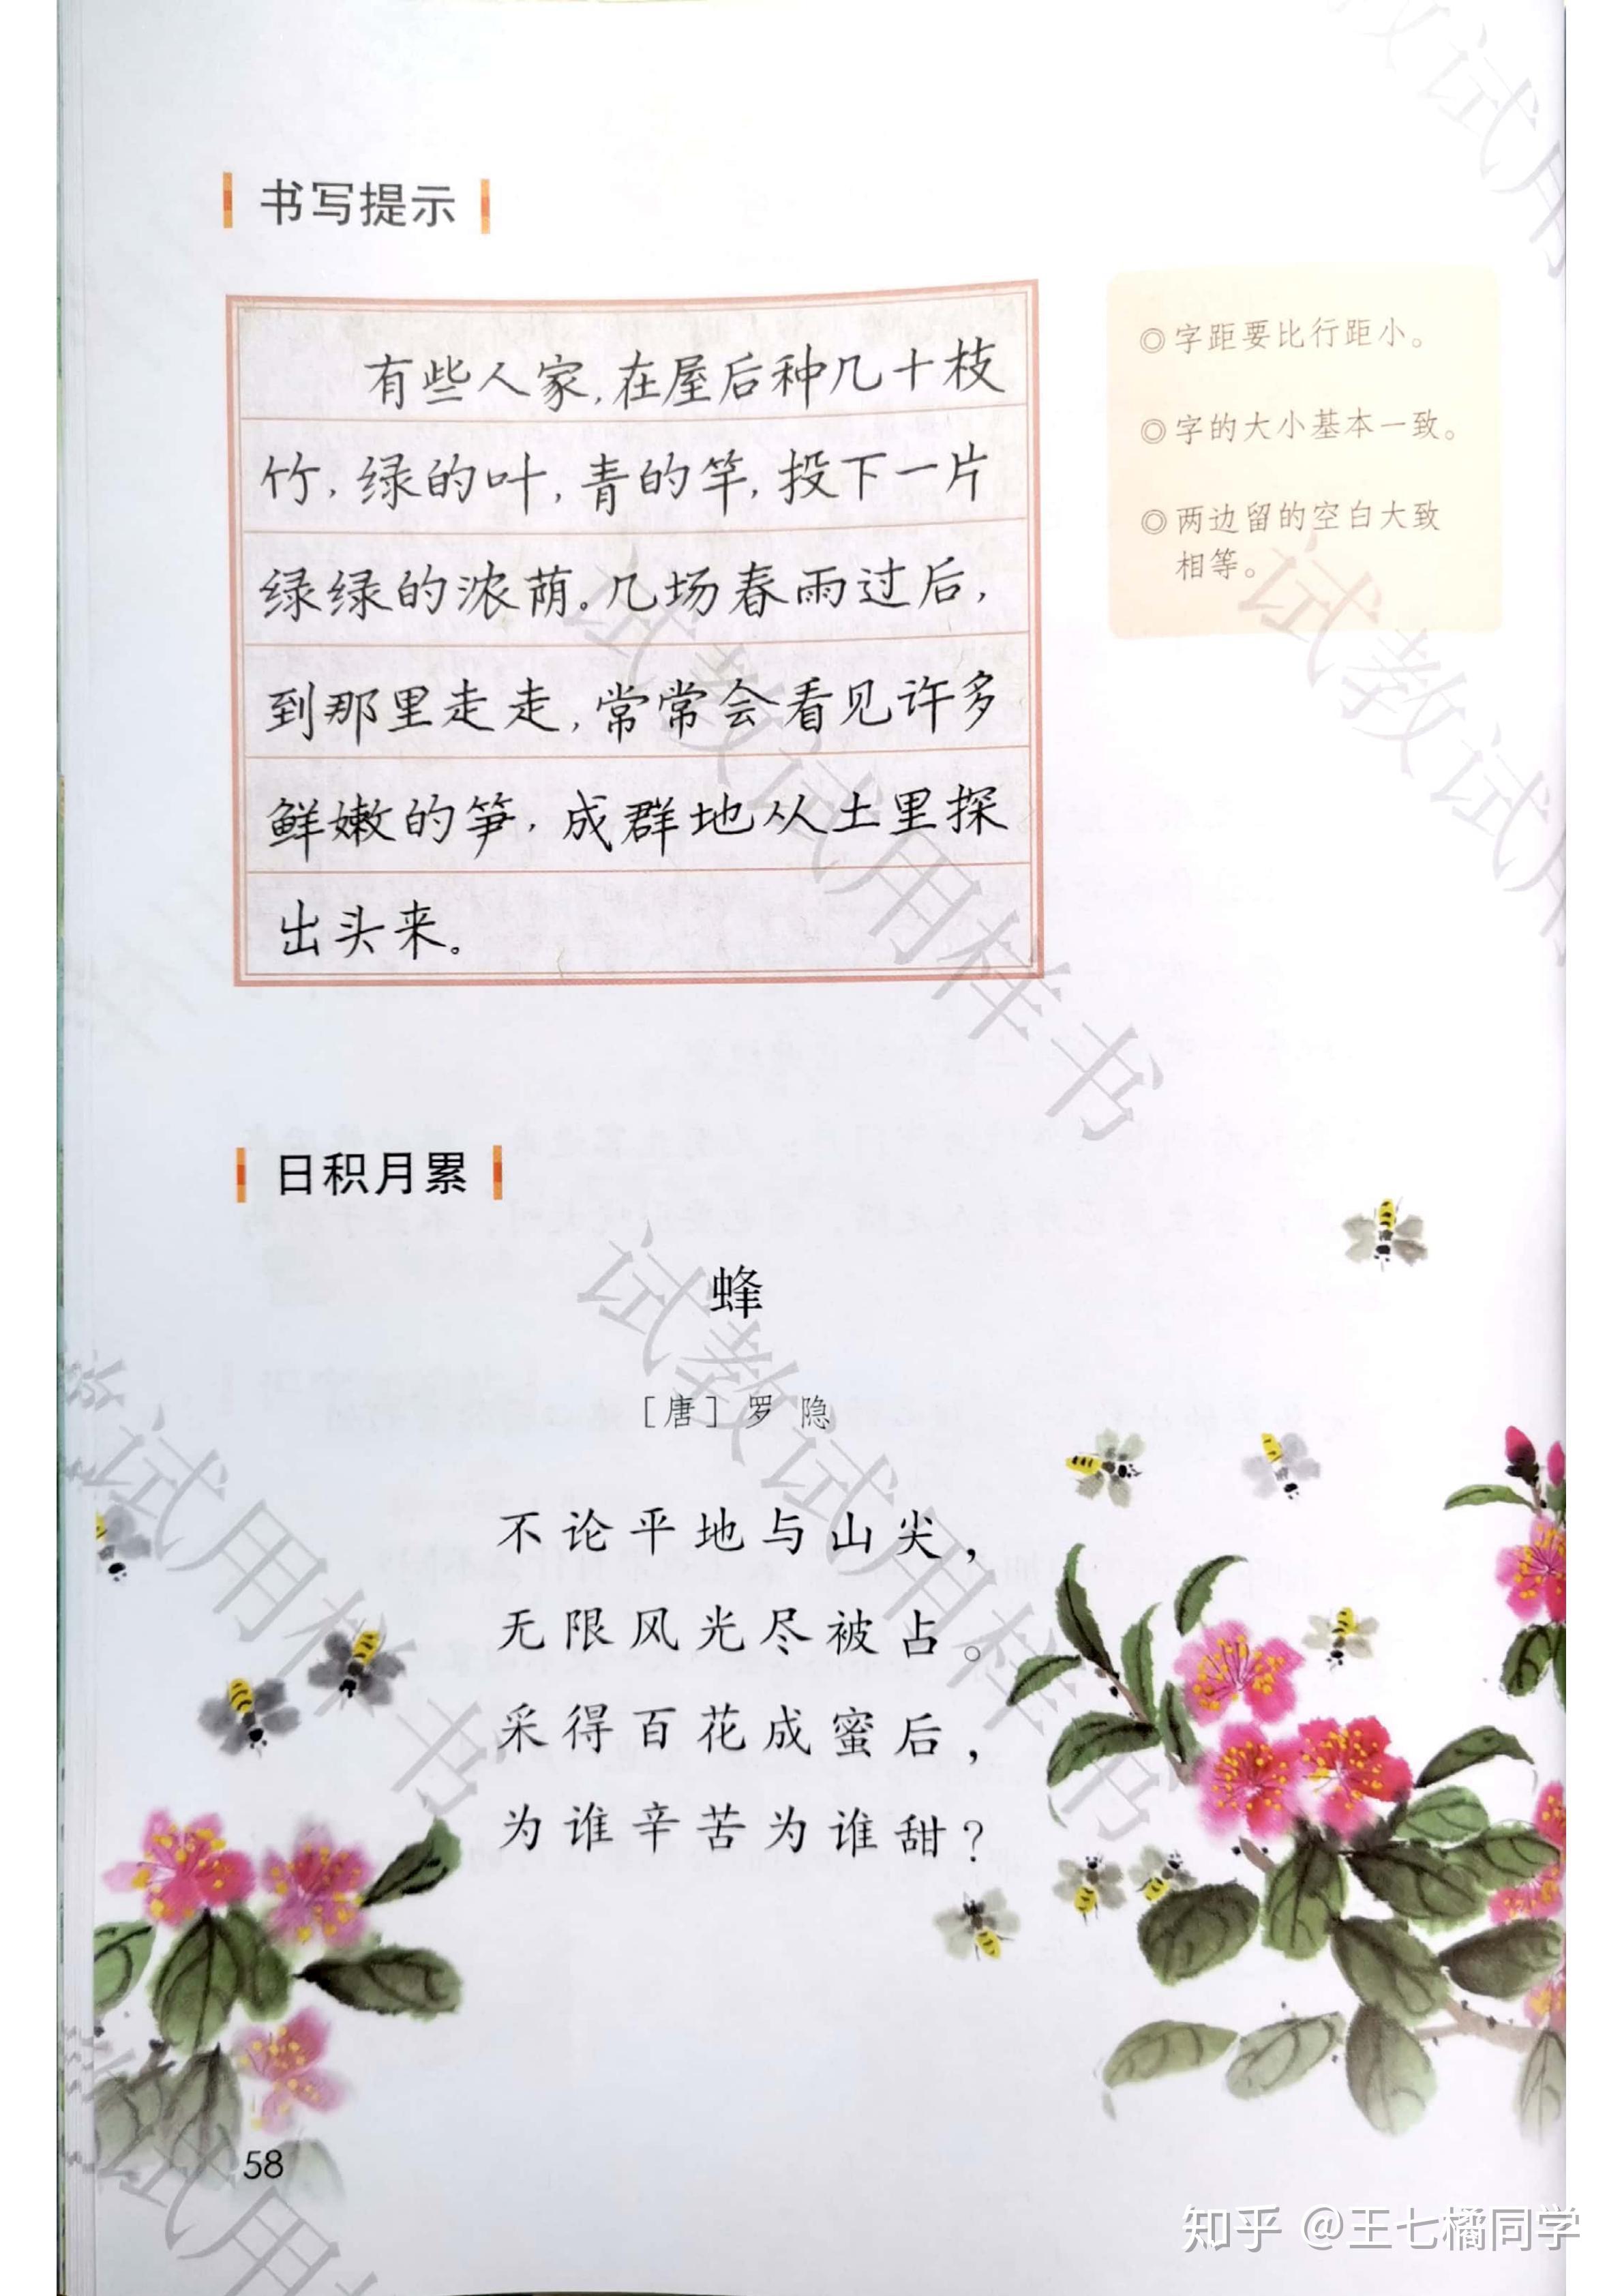 书写提示
有些人家,在屋后种几十枝
竹,绿的叶,青的竿,投下一片
绿绿的浓荫。几场春雨过后,
到那里走走,常常会看见许多
鲜嫩的笋,成群地从土里探
出头来。
◎字距要比行距小。
◎字的大小基本一致。
◎两边留的空白大致
相等。
日积月累
蜂
[唐] 罗 隐
不论平地与山尖,
无限风光尽被占。
采得百花成蜜后,
为谁辛苦为谁甜?
58
试教试用样书
试教试用样书
试教试用
试用样书
知乎 @王七橘同学